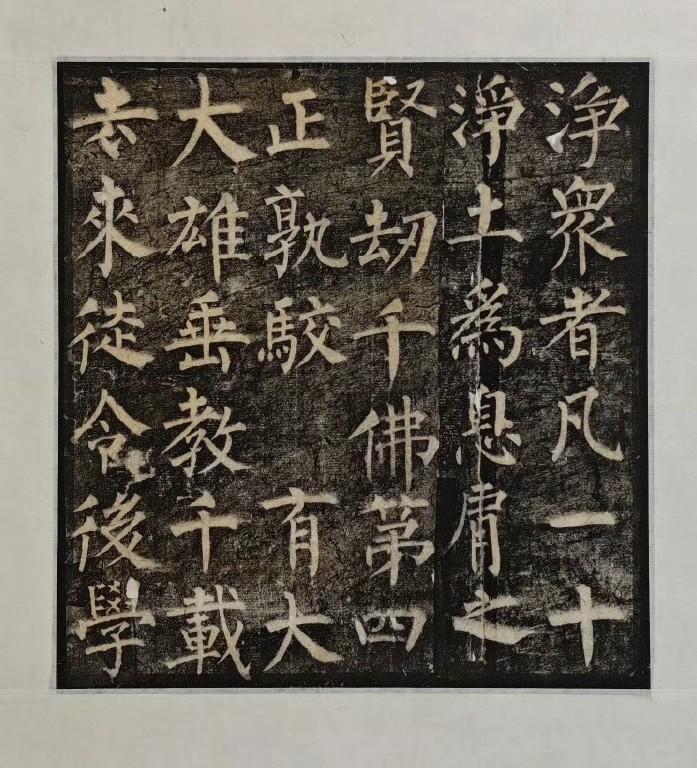 淨衆者凡一十
淨土為息肩之
賢劫千佛第四
正孰駮 有大
大雄垂教千載
去來徒令後學